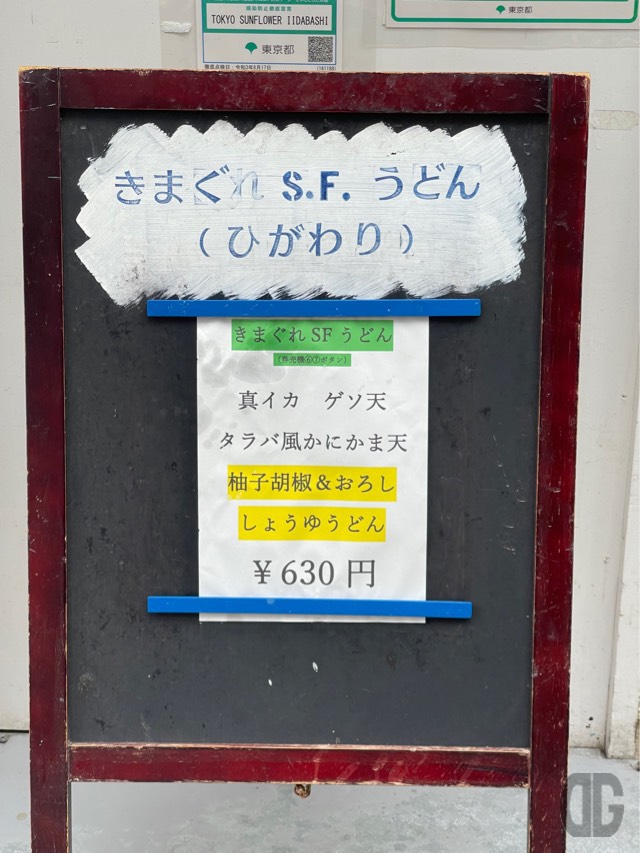 感染防止徹底宣言
TOKYO SUNFLOWER IIDABASHI
東京都
東京都
きまぐれ S.F. うどん
(ひがわり)
きまぐれSFうどん
(券売機⑥⑦ボタン)
真イカ ゲソ天
タラバ風かにかま天
柚子胡椒&おろし
しょうゆうどん
¥630円
DG